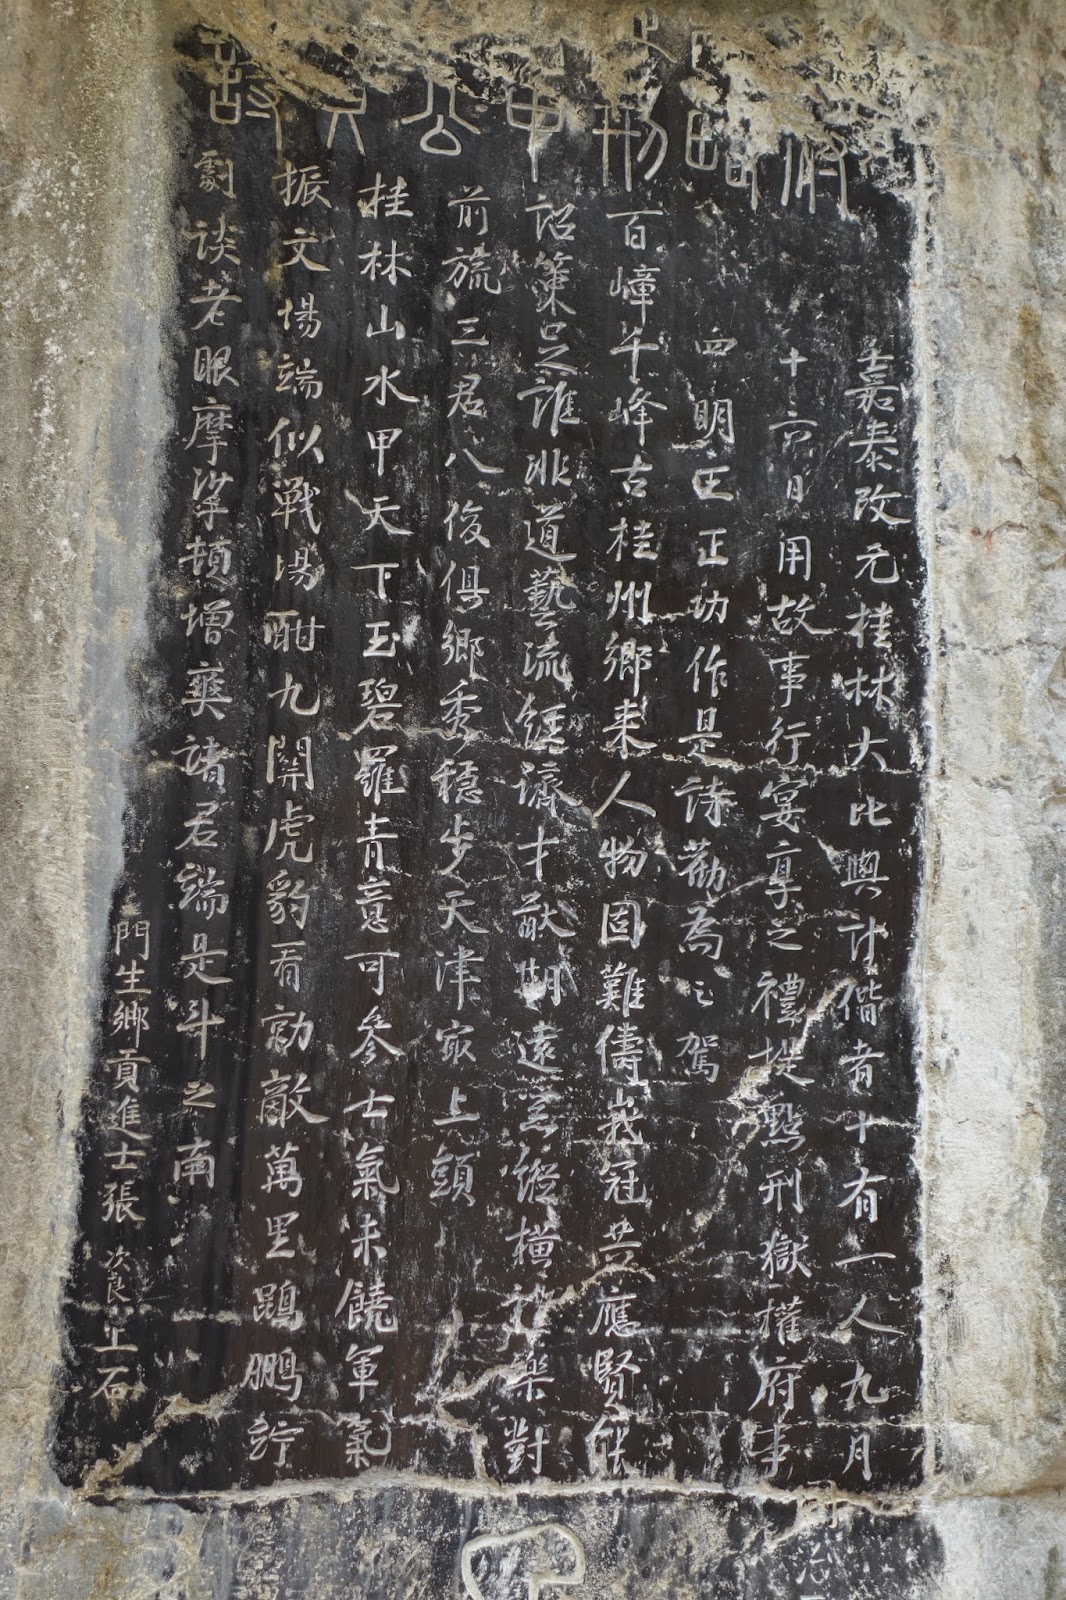 嘉泰改元桂林大比與計偕者十有一人九月
十六日用故事行宴享之禮提點刑獄權府事
四明王正功作是詩勸為之駕
百嶂千峰古桂州鄉來人物固難儔峩冠共應賢能
詔策足誰非道藝流經濟才猷期遠業縱橫禮樂對
前旒三君八俊俱鄉秀穩步天津冣上頭
桂林山水甲天下玉碧羅青意可參士氣未饒軍氣
振文場端似戰場酣九關虎豹看勍敵萬里鵾鵬佇
劇談老眼摩挲頓增爽諸君端是斗之南
門生鄉貢進士張次良上石